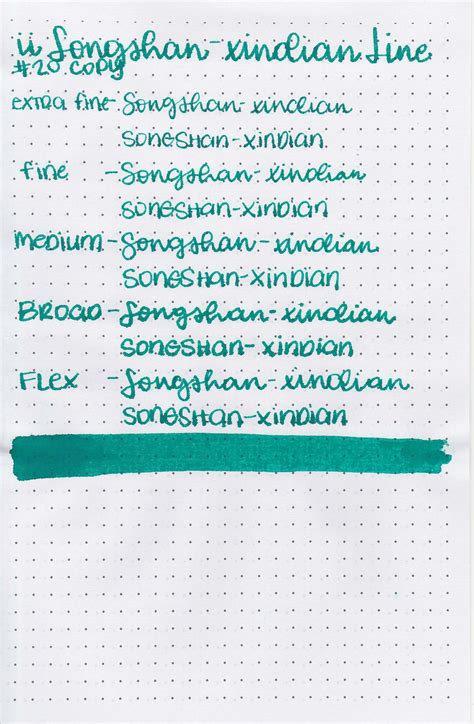 ii Songshan-xindian Line
#20 copy
extra fine - Songshan-xindian
SONGSHAN-XINDIAN
fine - Songshan-xindian
SONGSHAN-XINDIAN
MEDIUM - Songshan-xindian
SONGSHAN-XINDIAN
BROAD - Songshan-xindian
SONGSHAN-XINDIAN
FLEX - Songshan-xindian
SONGSHAN-XINDIAN